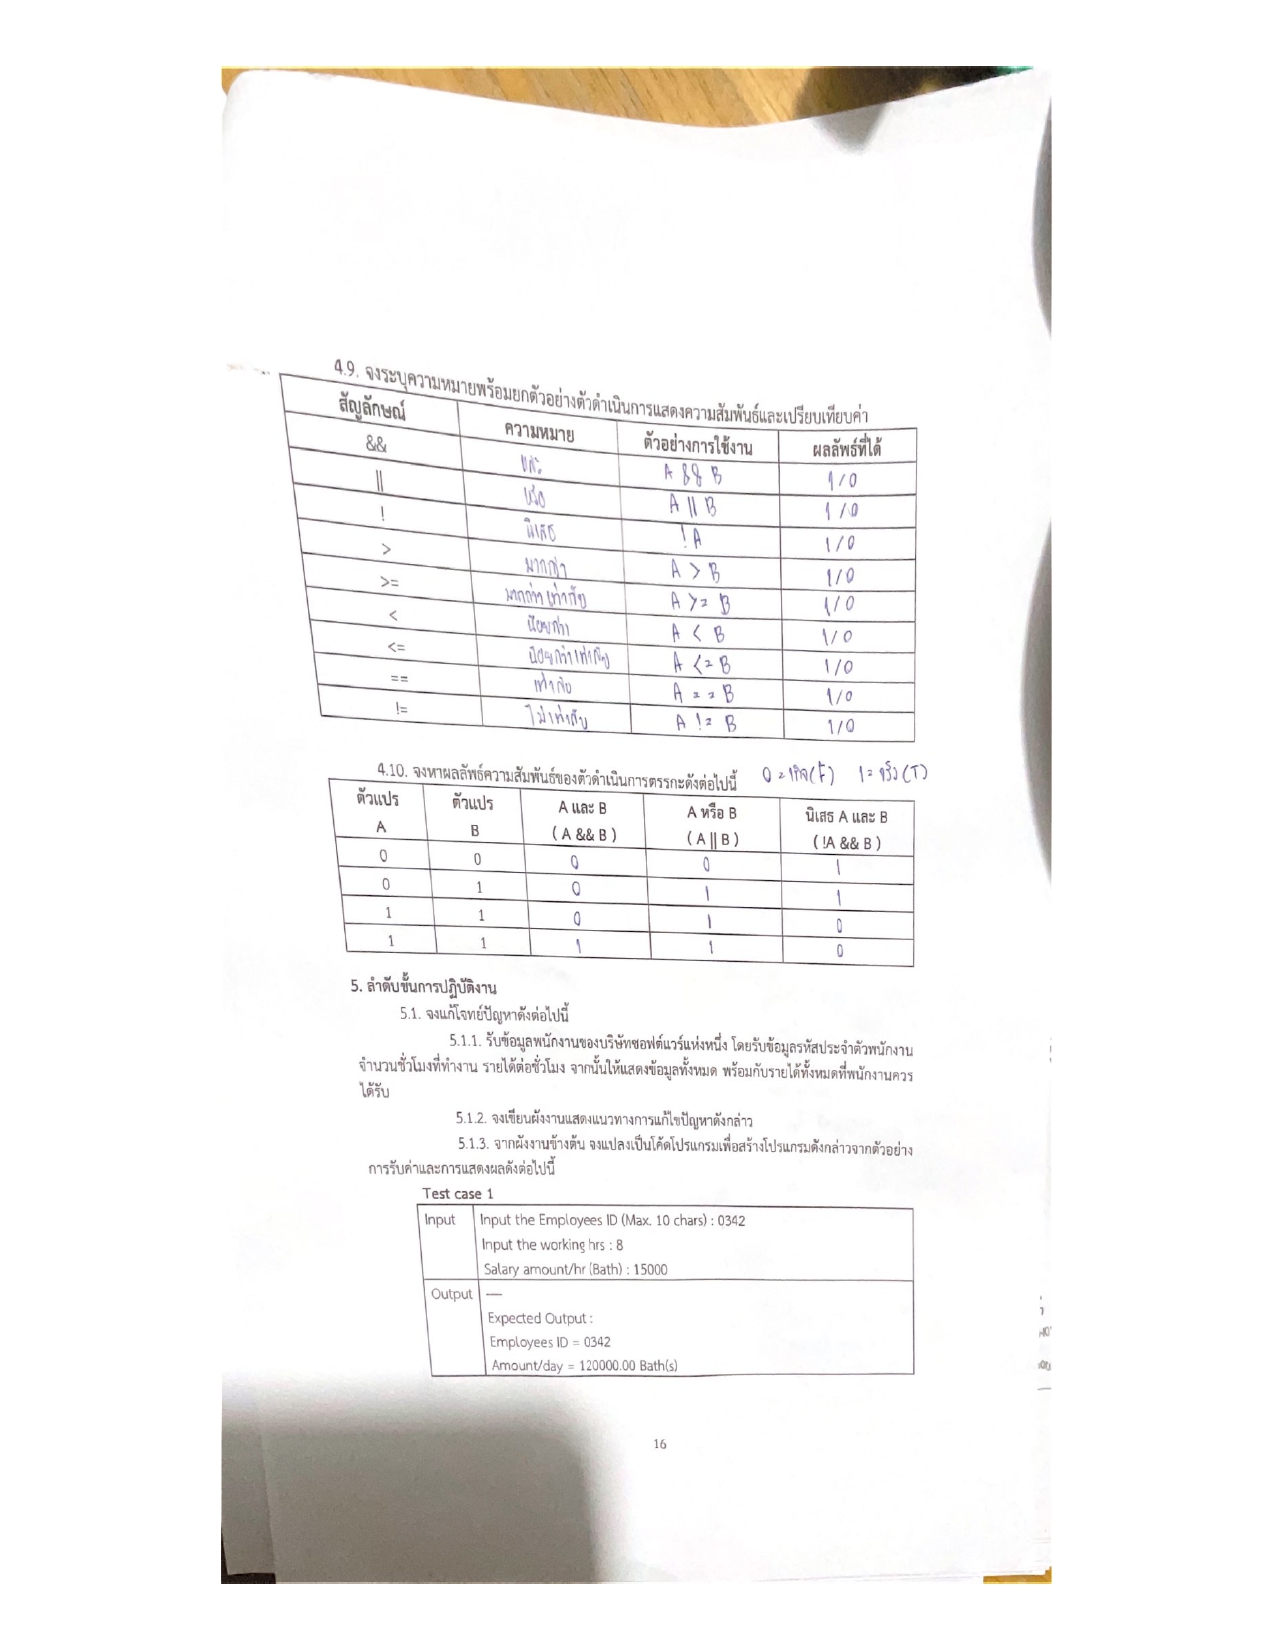 4.9. จงระบุความหมายพร้อมยกตัวอย่างตัวดำเนินการแสดงความสัมพันธ์และเปรียบเทียบค่า
สัญลักษณ์ ความหมาย ตัวอย่างการใช้งาน ผลลัพธ์ที่ได้
&& และ A && B 1/0
|| หรือ A || B 1/0
! นิเสธ !A 1/0
> มากกว่า A > B 1/0
>= มากกว่าเท่ากับ A >= B 1/0
< น้อยกว่า A < B 1/0
<= น้อยกว่าเท่ากับ A <= B 1/0
== เท่ากับ A == B 1/0
!= ไม่เท่ากับ A != B 1/0
4.10. จงหาผลลัพธ์ความสัมพันธ์ของตัวดำเนินการตรรกะดังต่อไปนี้ 0 = เท็จ(F) 1 = จริง(T)
ตัวแปร ตัวแปร A และ B A หรือ B นิเสธ A และ B
A B ( A && B ) ( A || B ) ( !A && B )
0 0 0 0 1
0 1 0 1 1
1 1 0 1 0
1 1 1 1 0
5. ลำดับขั้นการปฏิบัติงาน
5.1. จงแก้โจทย์ปัญหาดังต่อไปนี้
5.1.1. รับข้อมูลพนักงานของบริษัทซอฟต์แวร์แห่งหนึ่ง โดยรับข้อมูลรหัสประจำตัวพนักงาน
จำนวนชั่วโมงที่ทำงาน รายได้ต่อชั่วโมง จากนั้นให้แสดงข้อมูลทั้งหมด พร้อมกับรายได้ทั้งหมดที่พนักงานควร
ได้รับ
5.1.2. จงเขียนผังงานแสดงแนวทางการแก้ไขปัญหาดังกล่าว
5.1.3. จากผังงานข้างต้น จงแปลงเป็นโค้ดโปรแกรมเพื่อสร้างโปรแกรมดังกล่าวจากตัวอย่าง
การรับค่าและการแสดงผลดังต่อไปนี้
Test case 1
Input Input the Employees ID (Max. 10 chars) : 0342
Input the working hrs : 8
Salary amount/hr (Bath) : 15000
Output —
Expected Output :
Employees ID = 0342
Amount/day = 120000.00 Bath(s)
16